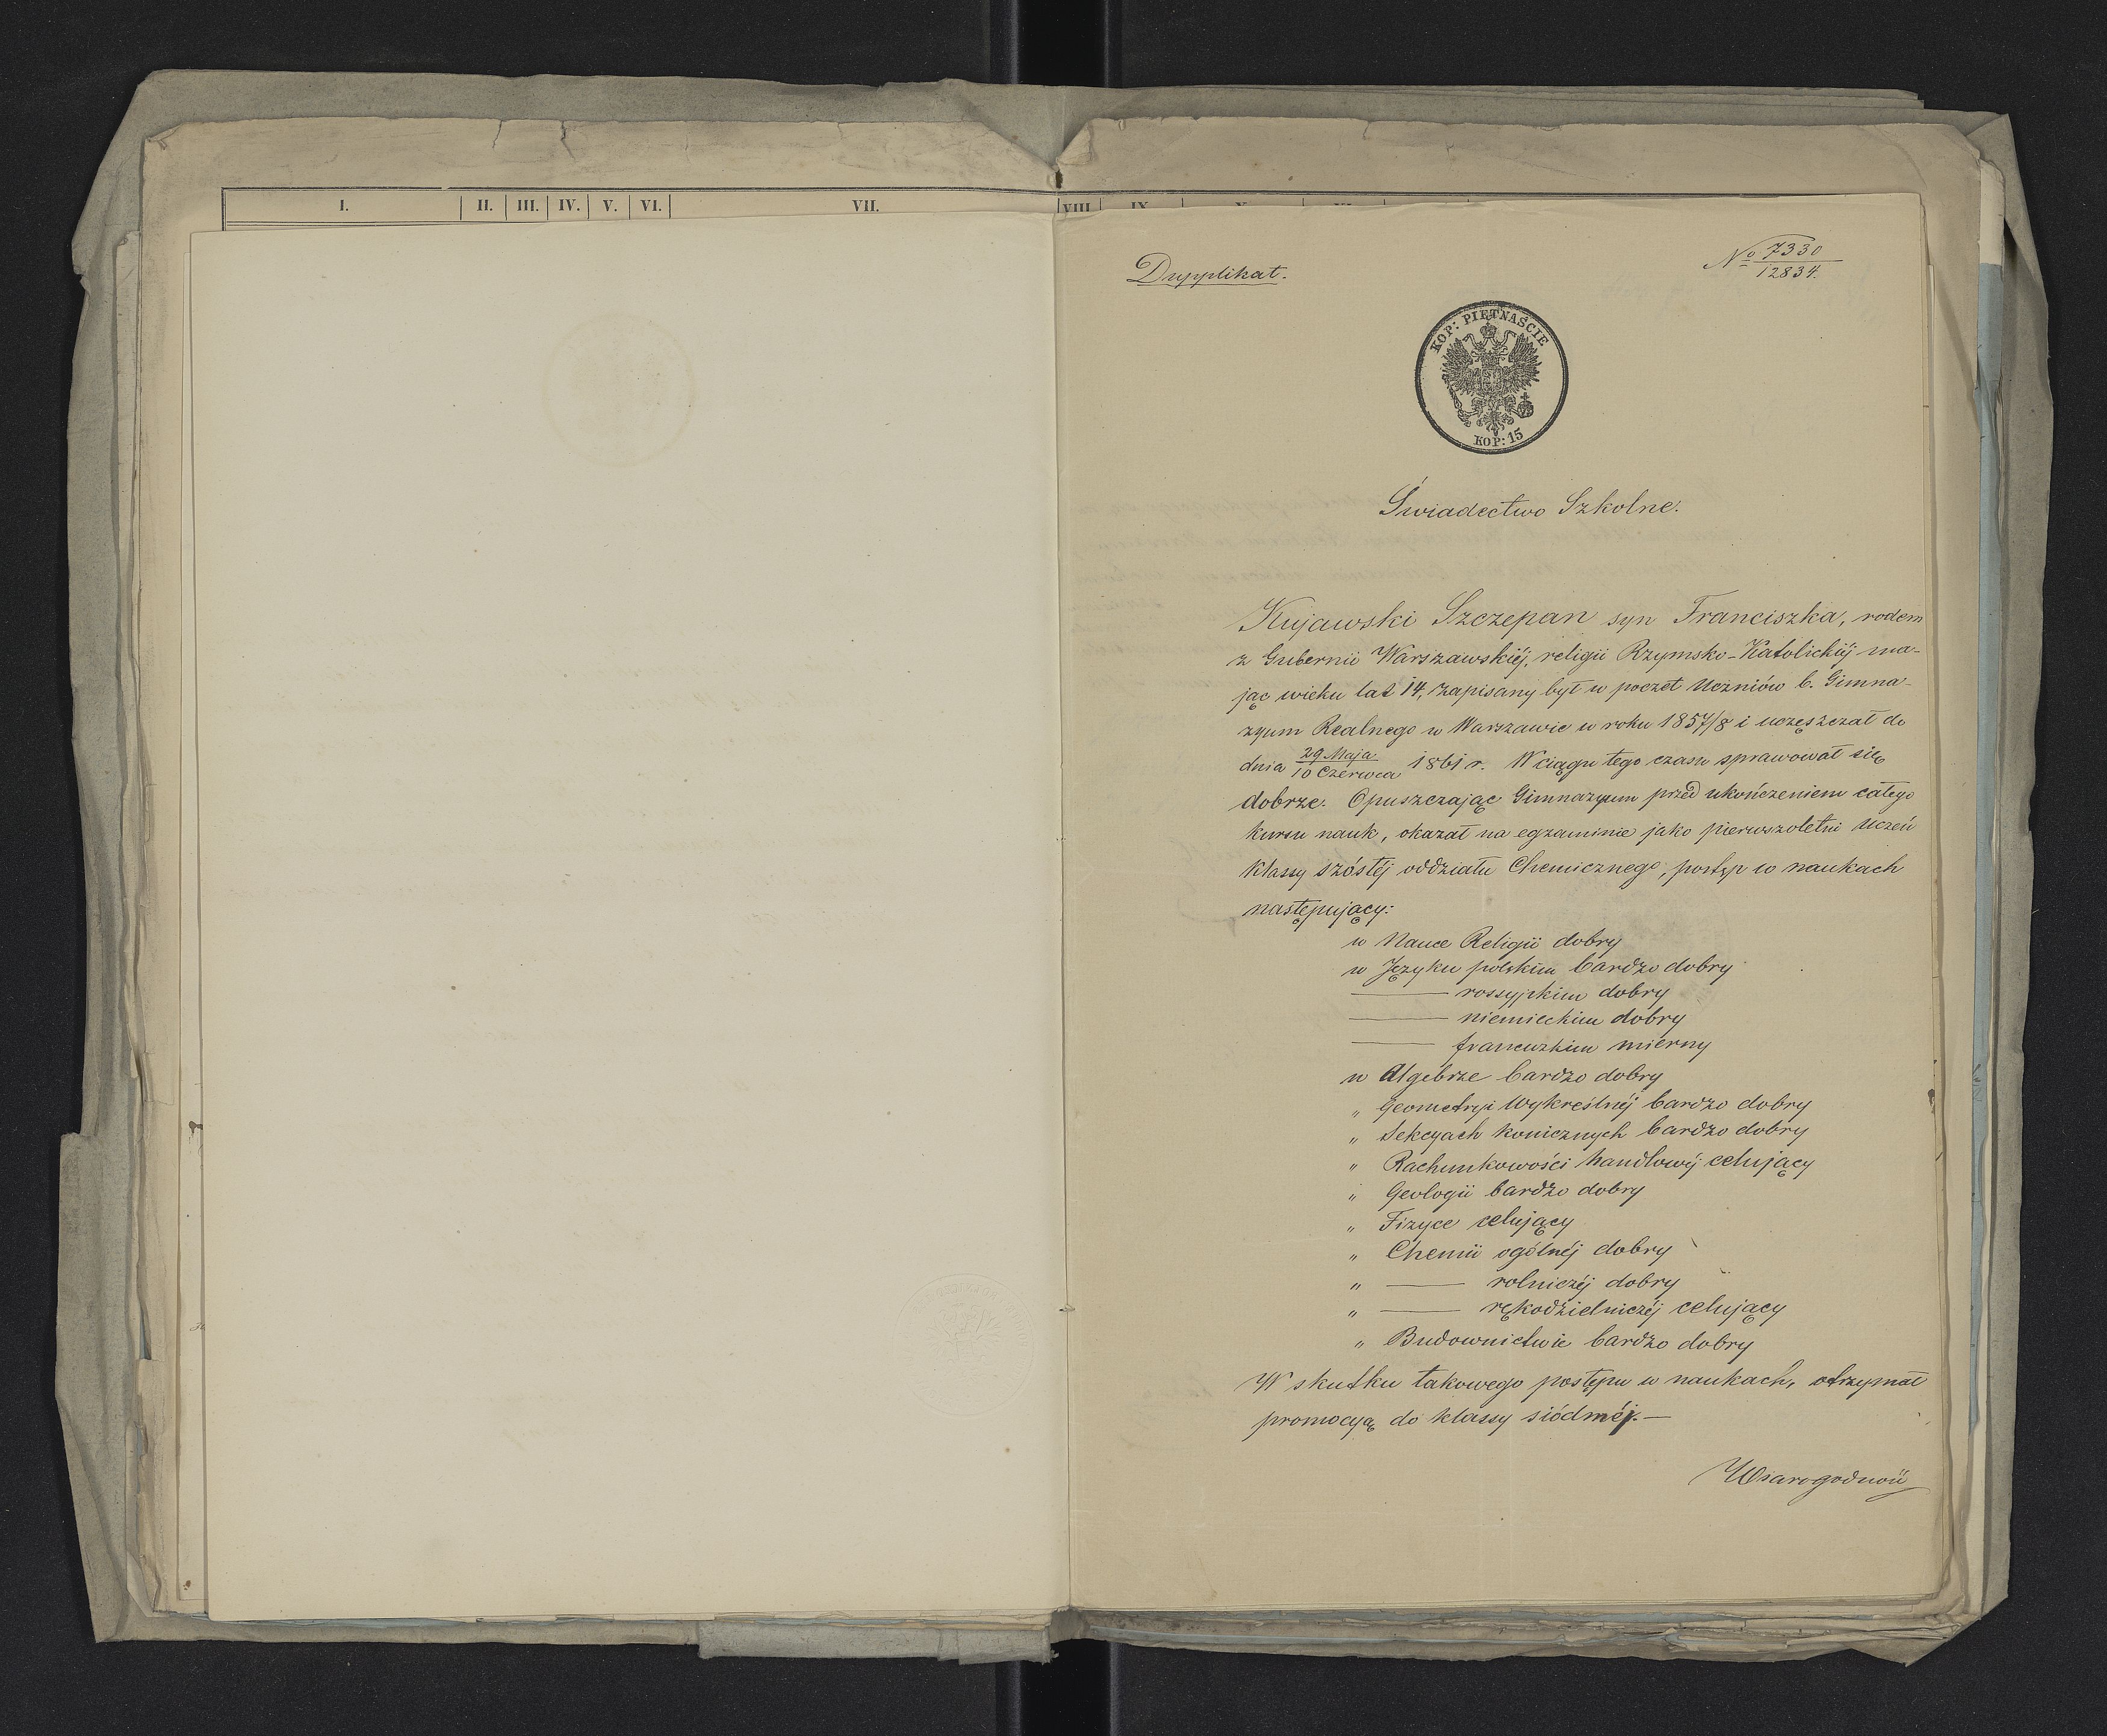 I. II. III. IV. V. VI. VII. VIII. IX. X. XI.
Dupplikat.
№ 7330
12834.
KOP: PIĘTNAŚCIE
KOP: 15
Świadectwo Szkolne.
Kujawski Szczepan syn Franciszka, rodem
z Gubernii Warszawskiéj, religii Rzymsko-Katolickiéj ma-
jąc wieku lat 14, zapisany był w poczet Uczniów b. Gimna-
zyum Realnego w Warszawie w roku 1857/8 i uczęszczał do
dnia 29 Maja / 10 Czerwca 1861 r. W ciągu tego czasu sprawował się
dobrze. Opuszczając Gimnazyum przed ukończeniem całego
kursu nauk, okazał na egzaminie jako pierwszoletni Uczeń
klassy szóstéj oddziału Chemicznego, postęp w naukach
następujący:
w Nauce Religii dobry
w Języku polskim bardzo dobry
—— rossyjskim dobry
—— niemieckim dobry
—— francuzkim mierny
w Algebrze bardzo dobry
„ Geometryi Wykreślnéj bardzo dobry
„ Sekcyach konicznych bardzo dobry
„ Rachunkowości handlowéj celujący
„ Geologii bardzo dobry
„ Fizyce celujący
„ Chemii ogólnéj dobry
„ —— rolniczéj dobry
„ —— rękodzielniczéj celujący
„ Budownictwie bardzo dobry
W skutku takowego postępu w naukach, otrzymał
promocyą do klassy siódméj.—